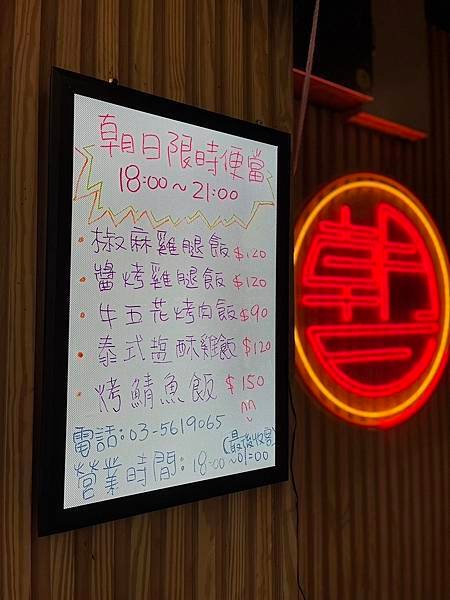 朝日限時便當
18:00~21:00
・椒麻雞腿飯 $120
・醬烤雞腿飯 $120
・牛五花烤肉飯 $90
・泰式盐酥雞飯 $120
・烤鯖魚飯 $150
電話:03-5619065
(最後收客)
營業時間:18:00~01:00